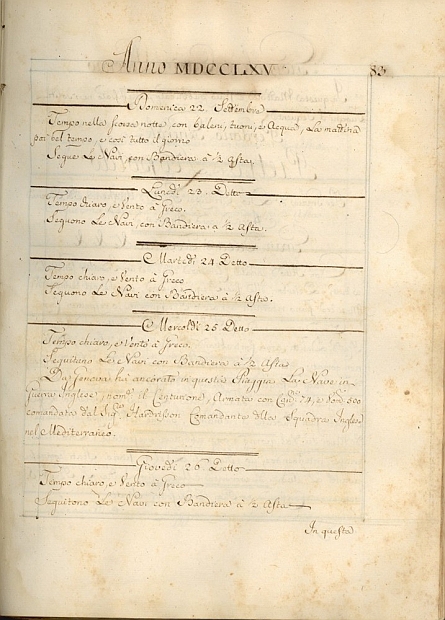 Anno MDCCLXV 83
Domenica 22. Settembre
Tempo nella scorsa notte con baleni, tuoni, e Acqua, La mattina
poi bel tempo, e così tutto il giorno
Segue Le Navi con Bandiera à ½ Asta
Lunedì 23. Detto
Tempo chiaro, e Vento à Greco.
Seguono Le Navi, con Bandiera à ½ Asta.
Martedì 24 Detto
Tempo chiaro, e Vento à Greco
Seguono Le Navi con Bandiera à ½ Asta.
Mercoldì 25 Detto
Tempo chiaro, e Vento à Greco.
Seguitano Le Navi con Bandiera à ½ Asta
Da Genova ha ancorato in questa Piaggia La Nave in
Guera Inglese, nom: il Centurione, Armata con Can: 74, e
comandata dal Sig: Hardrisson Comandante della Squadra Inglese
nel Mediterraneo.
Giovedì 26 Detto
Tempo chiaro, e Vento à Greco
Seguitono Le Navi con Bandiera à ½ Asta
In questa